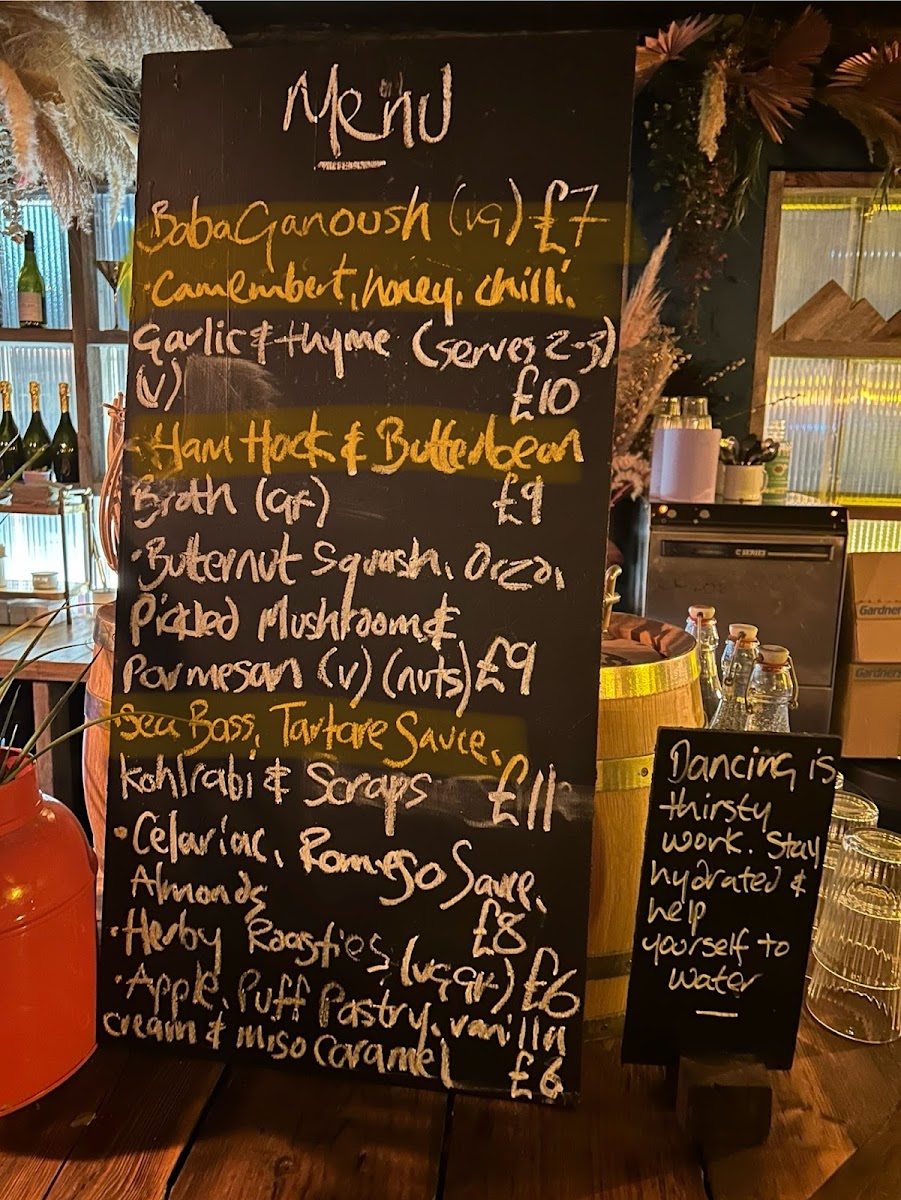 Menu
BabaGanoush (vg) £7
·Camembert, honey, chilli,
Garlic & thyme (serves 2-3)
(v) £10
·Ham Hock & Butterbean
Broth (gf) £9
·Butternut Squash, Orzo,
Pickled Mushroom &
Parmesan (v) (nuts) £9
·Sea Bass, Tartare Sauce,
Kohlrabi & Scraps £11
·Celariac, Romesgo Sauce,
Almonds £8
·Herby Roasties (vg gf) £6
·Apple, Puff Pastry, vanilla
cream & miso caramel £6
Dancing is
thirsty
work. Stay
hydrated &
help
yourself to
water
C SERIES
Gardners
Gardners